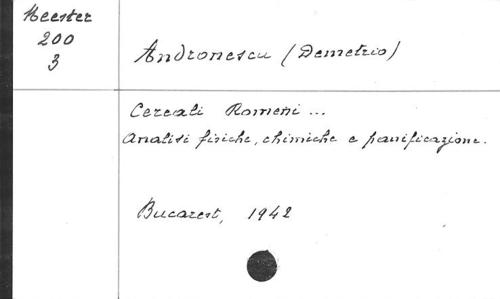 Meester
200
3
Andronescu (Demetrio)
Cereali Romeni ...
Analisi fisiche, chimiche e panificazione.
Bucarest, 1942